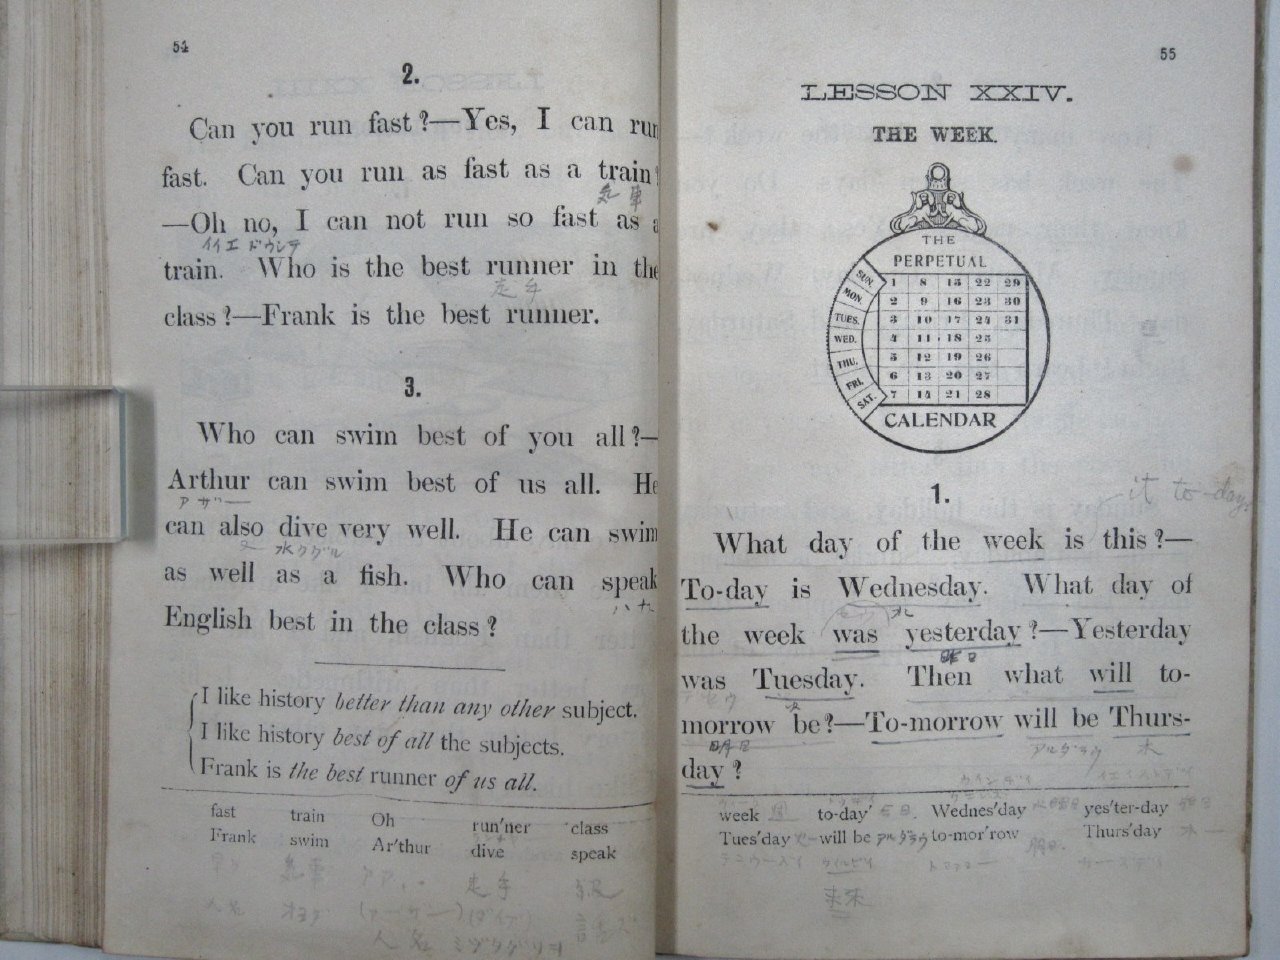 54
2.
Can you run fast?—Yes, I can run
fast. Can you run as fast as a train?
汽車
—Oh no, I can not run so fast as a
イイエ ドウシテ
train. Who is the best runner in the
走手
class?—Frank is the best runner.
3.
Who can swim best of you all?—
Arthur can swim best of us all. He
アーサー
can also dive very well. He can swim
水クグル
as well as a fish. Who can speak
English best in the class?
I like history better than any other subject.
I like history best of all the subjects.
Frank is the best runner of us all.
fast train Oh run'ner class
Frank swim Ar'thur dive speak
汽車 走手 級
人名 オヨグ
人名
55
LESSON XXIV.
THE WEEK.
THE
PERPETUAL
SUN. 1 8 15 22 29
MON. 2 9 16 23 30
TUES. 3 10 17 24 31
WED. 4 11 18 25
THU. 5 12 19 26
FRI. 6 13 20 27
SAT. 7 14 21 28
CALENDAR
1.
it to-day
What day of the week is this?—
To-day is Wednesday. What day of
水
the week was yesterday?—Yesterday
昨日
was Tuesday. Then what will to-
火
morrow be?—To-morrow will be Thurs-
明日 アルダラウ 木
day?
week to-day' Wednes'day 水曜日 yes'ter-day 昨日
Tues'day will be アルダラウ to-mor'row 明日 Thurs'day 木
ウイルビイ トマアロー サースデイ
未来